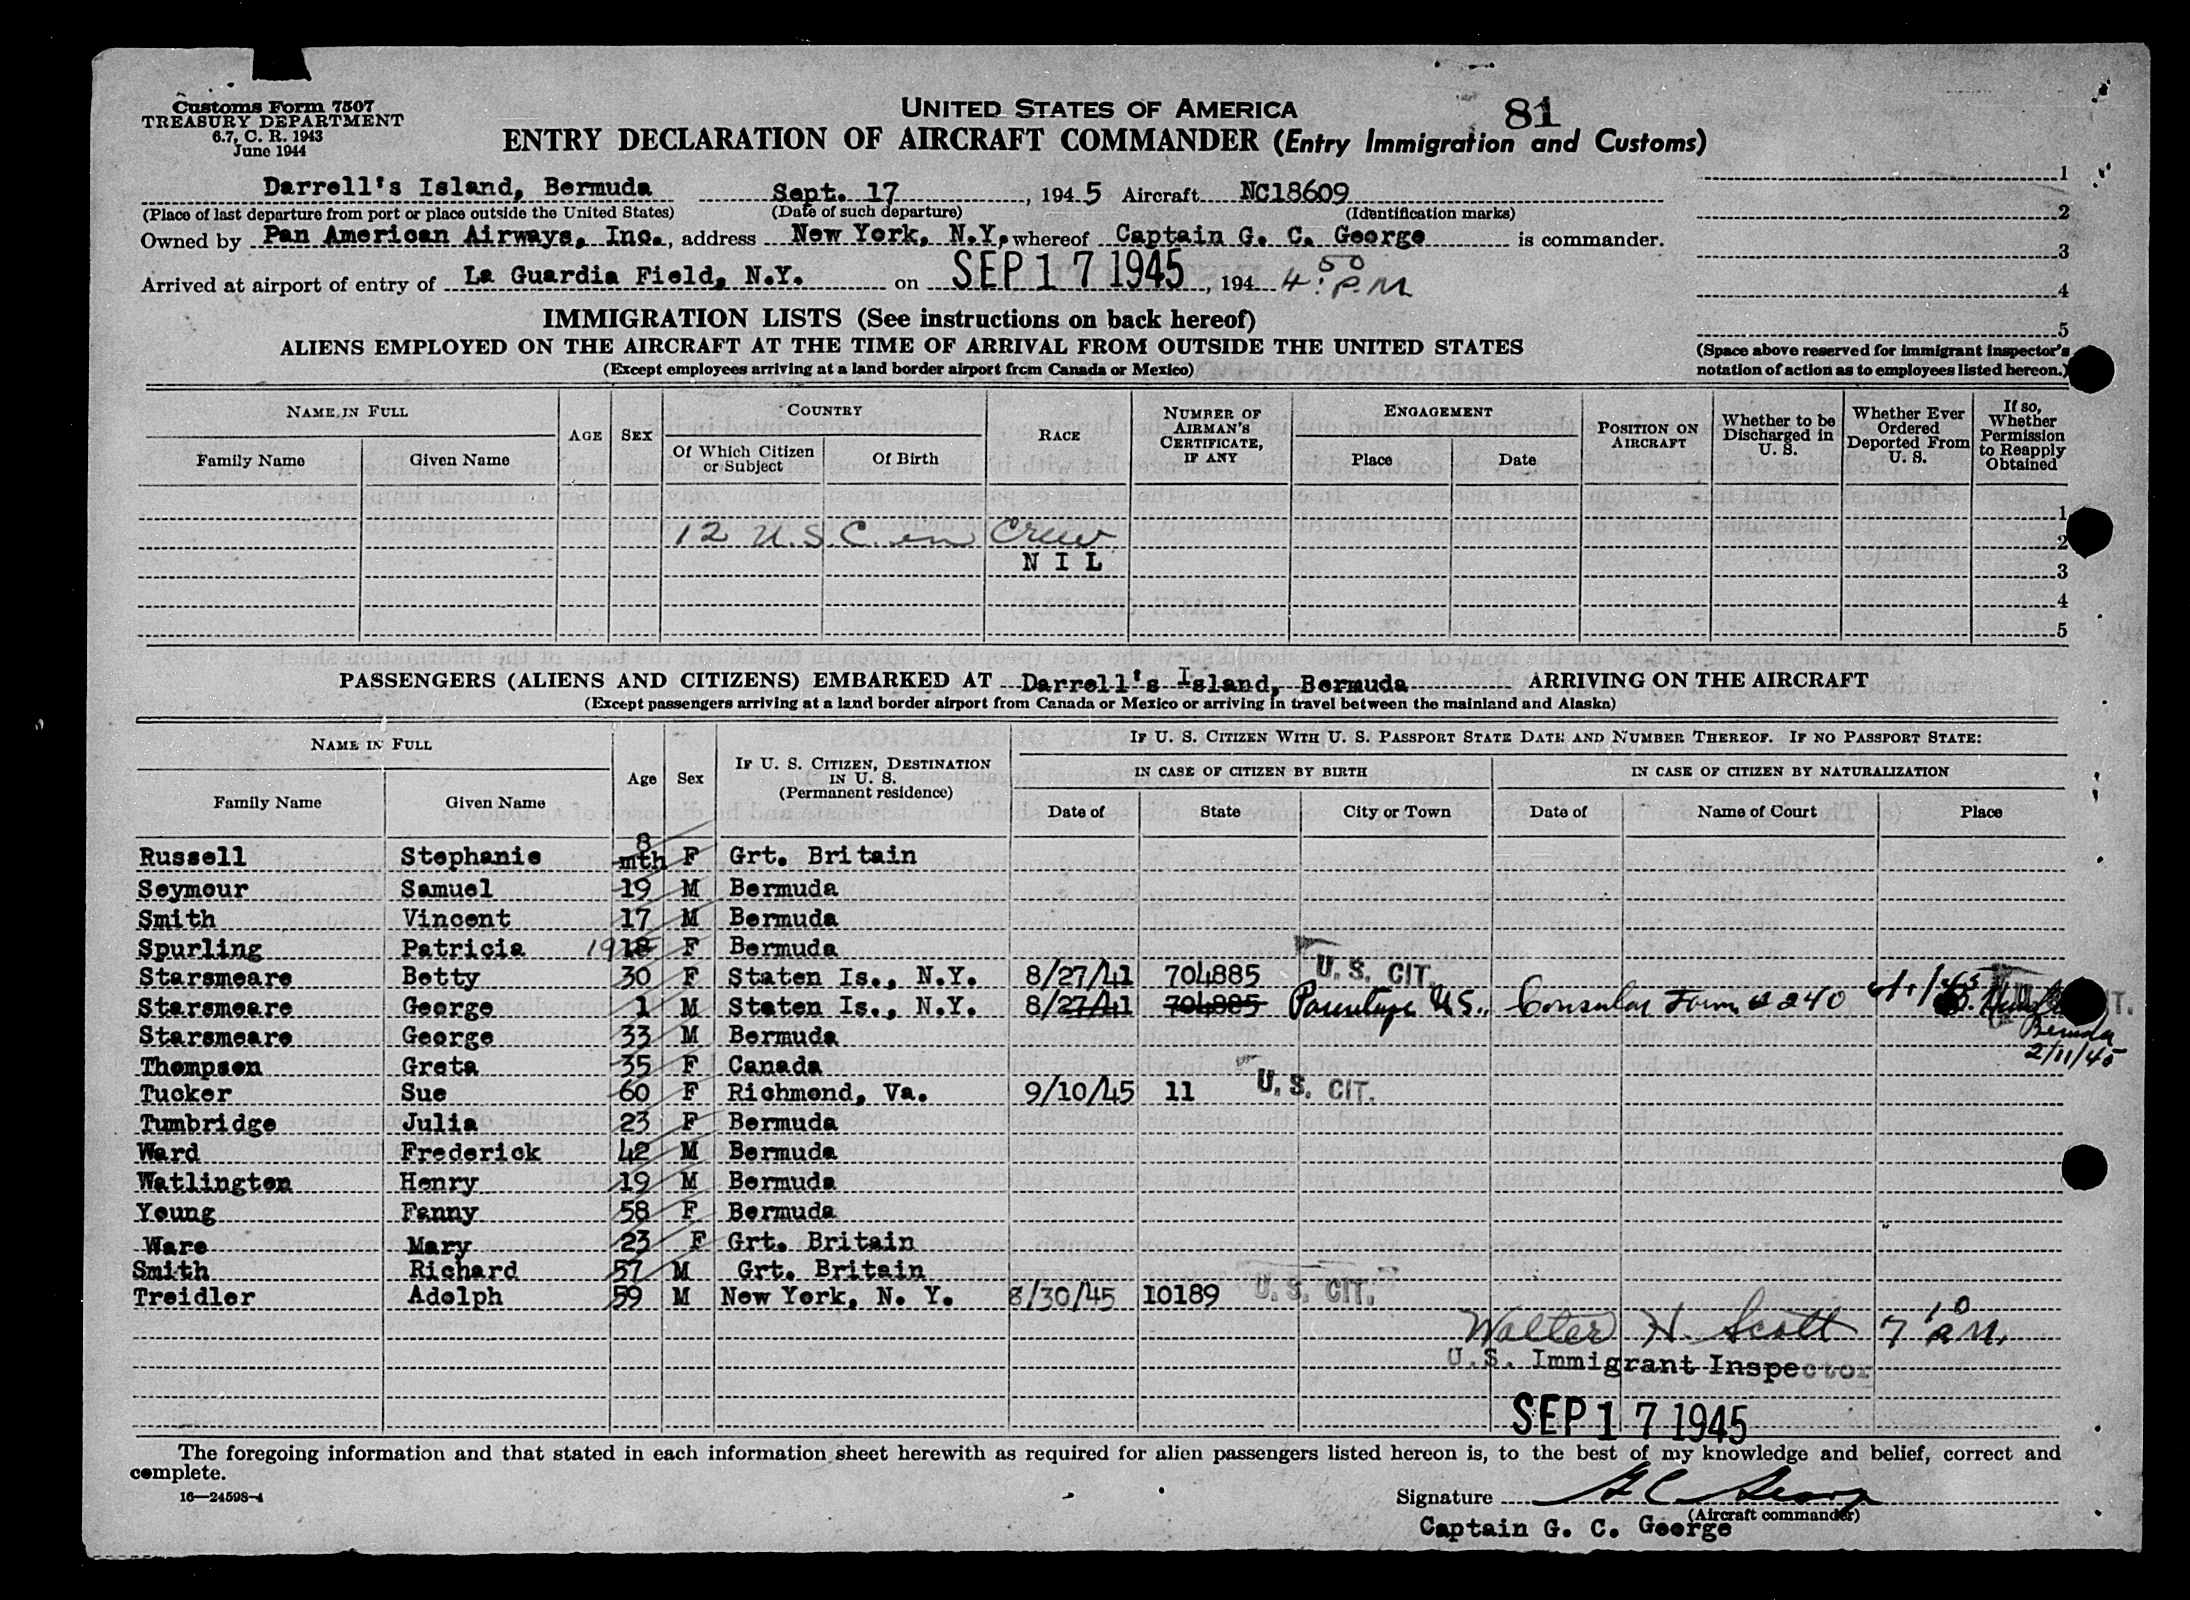 Customs Form 7507
TREASURY DEPARTMENT
6.7, C. R. 1943
June 1944
UNITED STATES OF AMERICA
81
ENTRY DECLARATION OF AIRCRAFT COMMANDER (Entry Immigration and Customs)
Darrell's Island, Bermuda Sept. 17, 194 5 Aircraft NC18609
(Place of last departure from port or place outside the United States) (Date of such departure) (Identification marks)
Owned by Pan American Airways, Inc., address New York, N.Y. whereof Captain G. C. George is commander.
Arrived at airport of entry of La Guardia Field, N.Y. on SEP 17 1945, 194 4:50 P.M
1
2
3
4
5
(Space above reserved for immigrant inspector's notation of action as to employees listed hereon.)
IMMIGRATION LISTS (See instructions on back hereof)
ALIENS EMPLOYED ON THE AIRCRAFT AT THE TIME OF ARRIVAL FROM OUTSIDE THE UNITED STATES
(Except employees arriving at a land border airport from Canada or Mexico)
NAME IN FULL
Family Name Given Name
AGE SEX
COUNTRY
Of Which Citizen or Subject Of Birth
RACE
NUMBER OF AIRMAN'S CERTIFICATE, IF ANY
ENGAGEMENT
Place Date
POSITION ON AIRCRAFT
Whether to be Discharged in U. S.
Whether Ever Ordered Deported From U. S.
If so, Whether Permission to Reapply Obtained
1
12 U.S.C. in Crew 2
N I L
3
4
5
PASSENGERS (ALIENS AND CITIZENS) EMBARKED AT Darrell's Island, Bermuda ARRIVING ON THE AIRCRAFT
(Except passengers arriving at a land border airport from Canada or Mexico or arriving in travel between the mainland and Alaska)
NAME IN FULL
Family Name Given Name
Age Sex
IF U. S. CITIZEN, DESTINATION IN U. S.
(Permanent residence)
IF U. S. CITIZEN WITH U. S. PASSPORT STATE DATE AND NUMBER THEREOF. IF NO PASSPORT STATE:
IN CASE OF CITIZEN BY BIRTH IN CASE OF CITIZEN BY NATURALIZATION
Date of State City or Town Date of Name of Court Place
Russell Stephanie 8 mth F Grt. Britain
Seymour Samuel 19 M Bermuda
Smith Vincent 17 M Bermuda
Spurling Patricia 19 18 F Bermuda
Starsmeare Betty 30 F Staten Is., N.Y. 8/27/41 704885 U. S. CIT.
Starsmeare George 1 M Staten Is., N.Y. 8/27/41 704885 U.S., Consular Form # 240
Bermuda
2/11/45
Starsmeare George 33 M Bermuda
Thompson Greta 35 F Canada
Tucker Sue 60 F Richmond, Va. 9/10/45 11 U. S. CIT.
Tumbridge Julia 23 F Bermuda
Ward Frederick 42 M Bermuda
Watlington Henry 19 M Bermuda
Young Fanny 58 F Bermuda
Ware Mary 23 F Grt. Britain
Smith Richard 57 M Grt. Britain
Treidler Adolph 59 M New York, N. Y. 8/30/45 10189 U. S. CIT.
Walter H. Scott 7 10 P.M.
U.S. Immigrant Inspector
SEP 17 1945
The foregoing information and that stated in each information sheet herewith as required for alien passengers listed hereon is, to the best of my knowledge and belief, correct and
complete.
16—24598-4
Signature G C George
(Aircraft commander)
Captain G. C. George